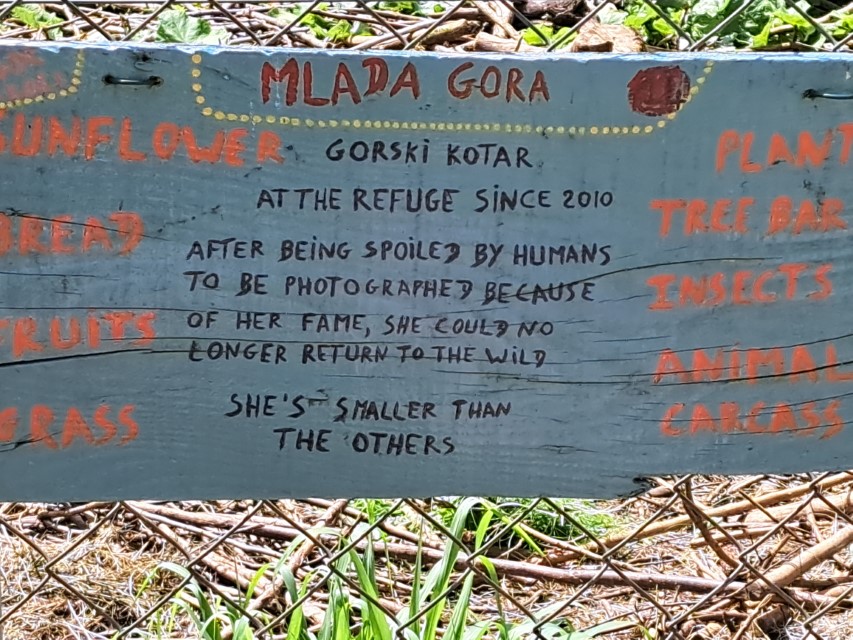 MLADA GORA
SUNFLOWER
BREAD
FRUITS
GRASS
GORSKI KOTAR
AT THE REFUGE SINCE 2010
AFTER BEING SPOILED BY HUMANS
TO BE PHOTOGRAPHED BECAUSE
OF HER FAME, SHE COULD NO
LONGER RETURN TO THE WILD
SHE'S SMALLER THAN
THE OTHERS
PLANT
TREE BAR
INSECTS
ANIMAL
CARCASS